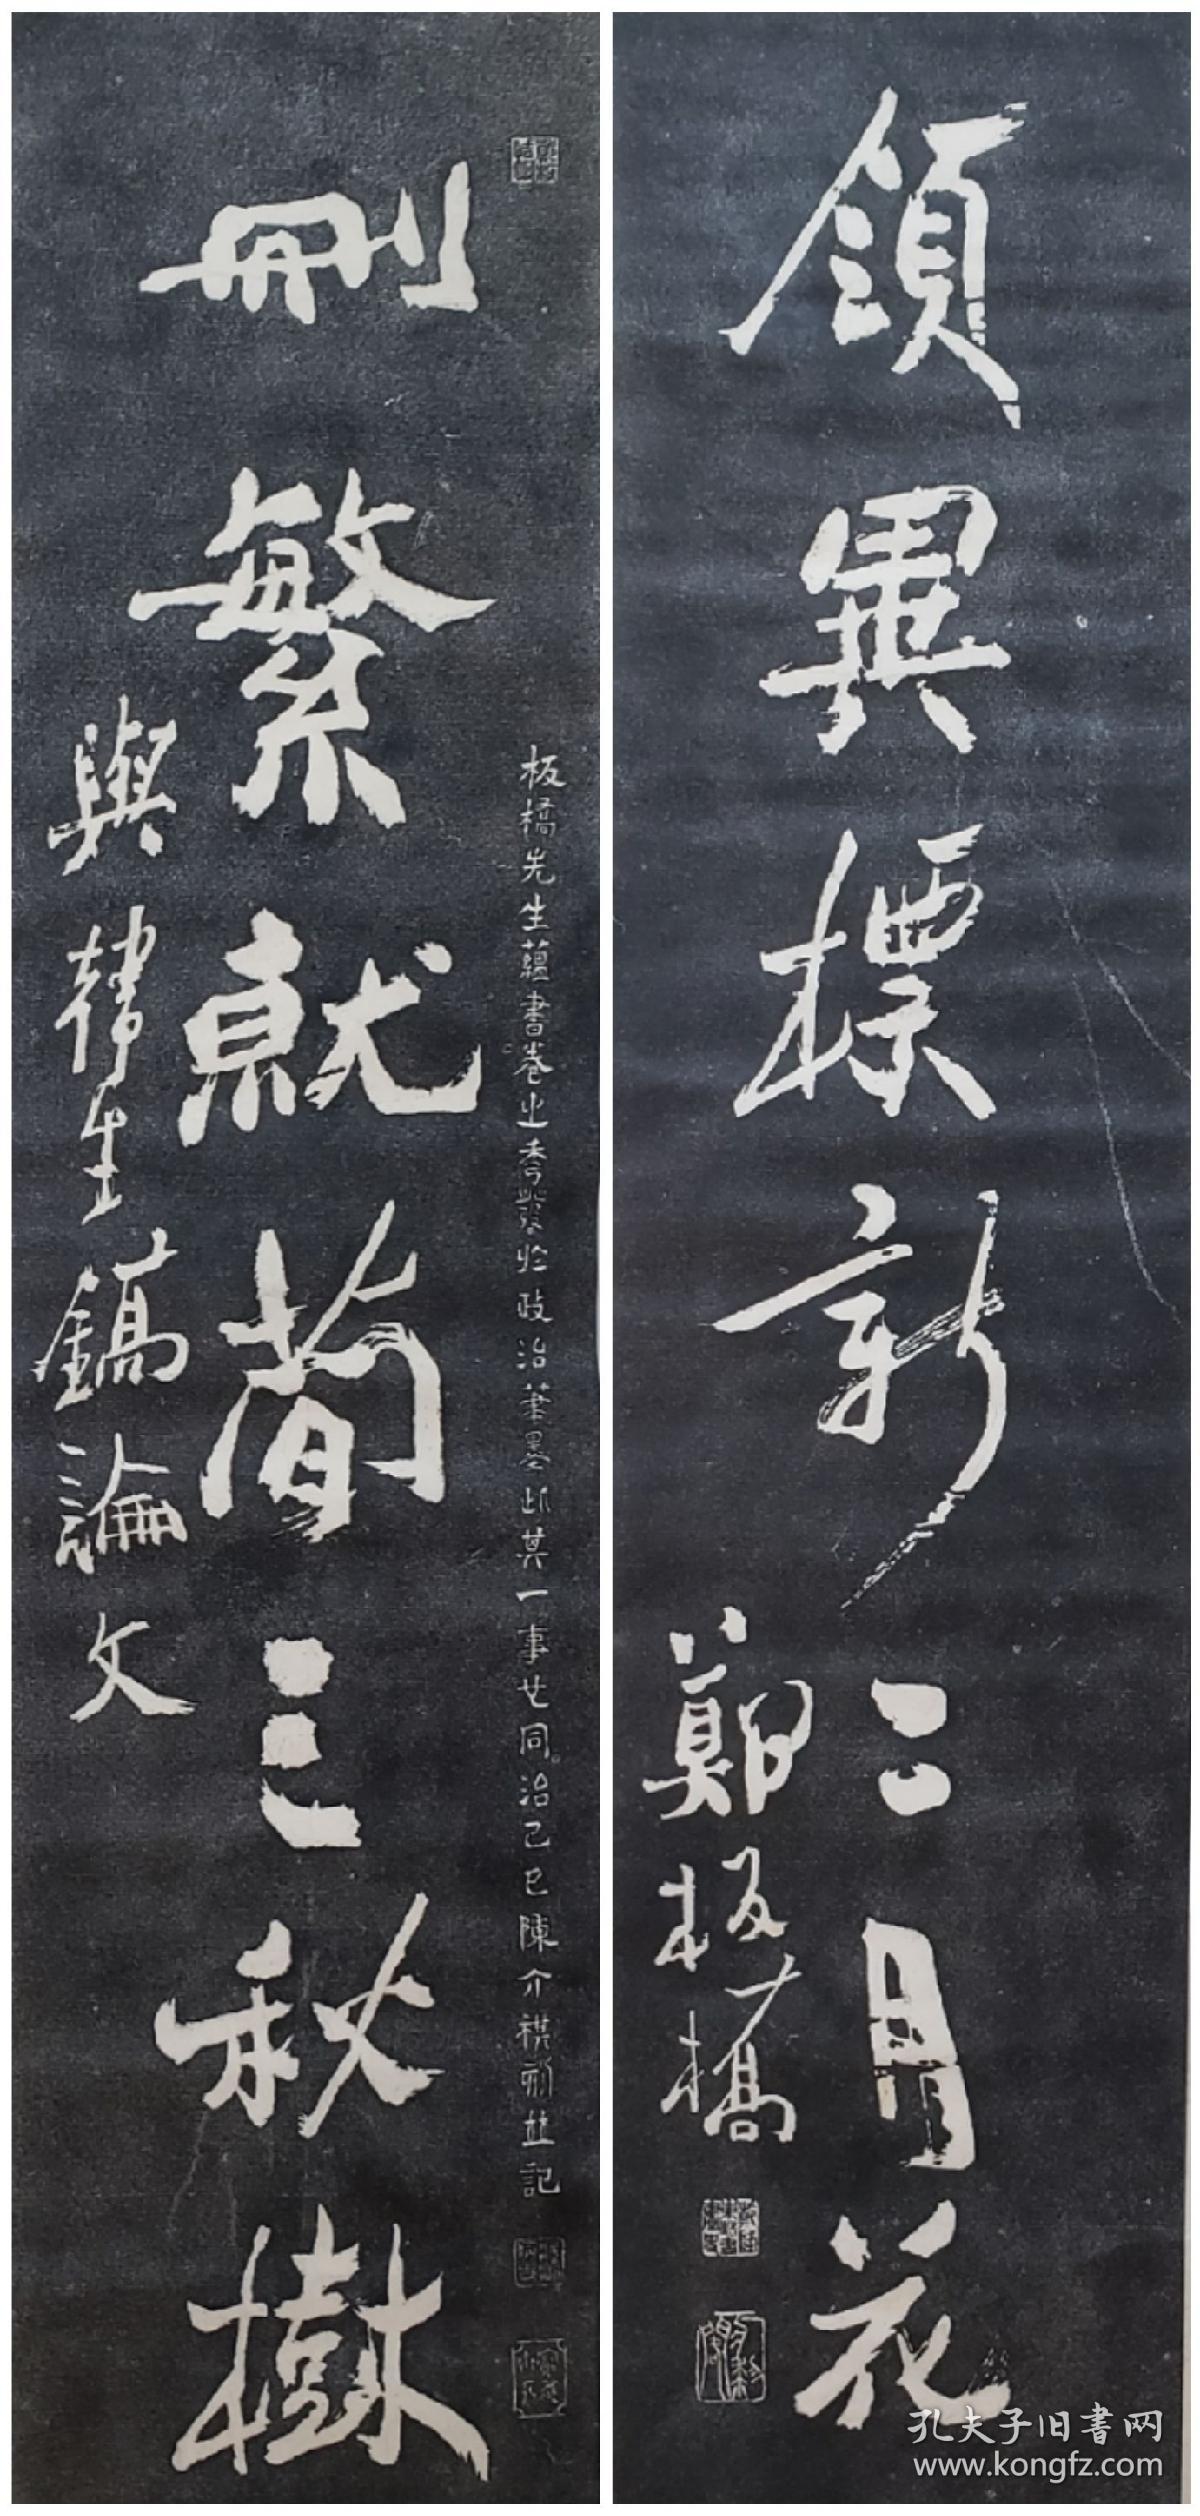 刪繁就簡三秋樹
與韓生鎬論文
板橋先生蘊書卷之秀發於政治筆墨此其一事也同治己巳陳介祺刻並記
領異標新二月花
鄭板橋
孔夫子旧書网
www.kongfz.com